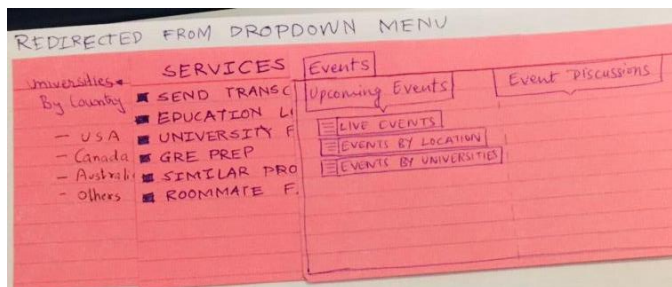 REDIRECTED FROM DROPDOWN MENU
Universities
By Country
- USA
- Canada
- Australi
- Others
SERVICES
SEND TRANSC
EDUCATION L
UNIVERSITY F
GRE PREP
SIMILAR PRO
ROOMMATE F.
Events
Upcoming Events
Event Discussions
LIVE EVENTS
EVENTS BY LOCATION
EVENTS BY UNIVERSITIES